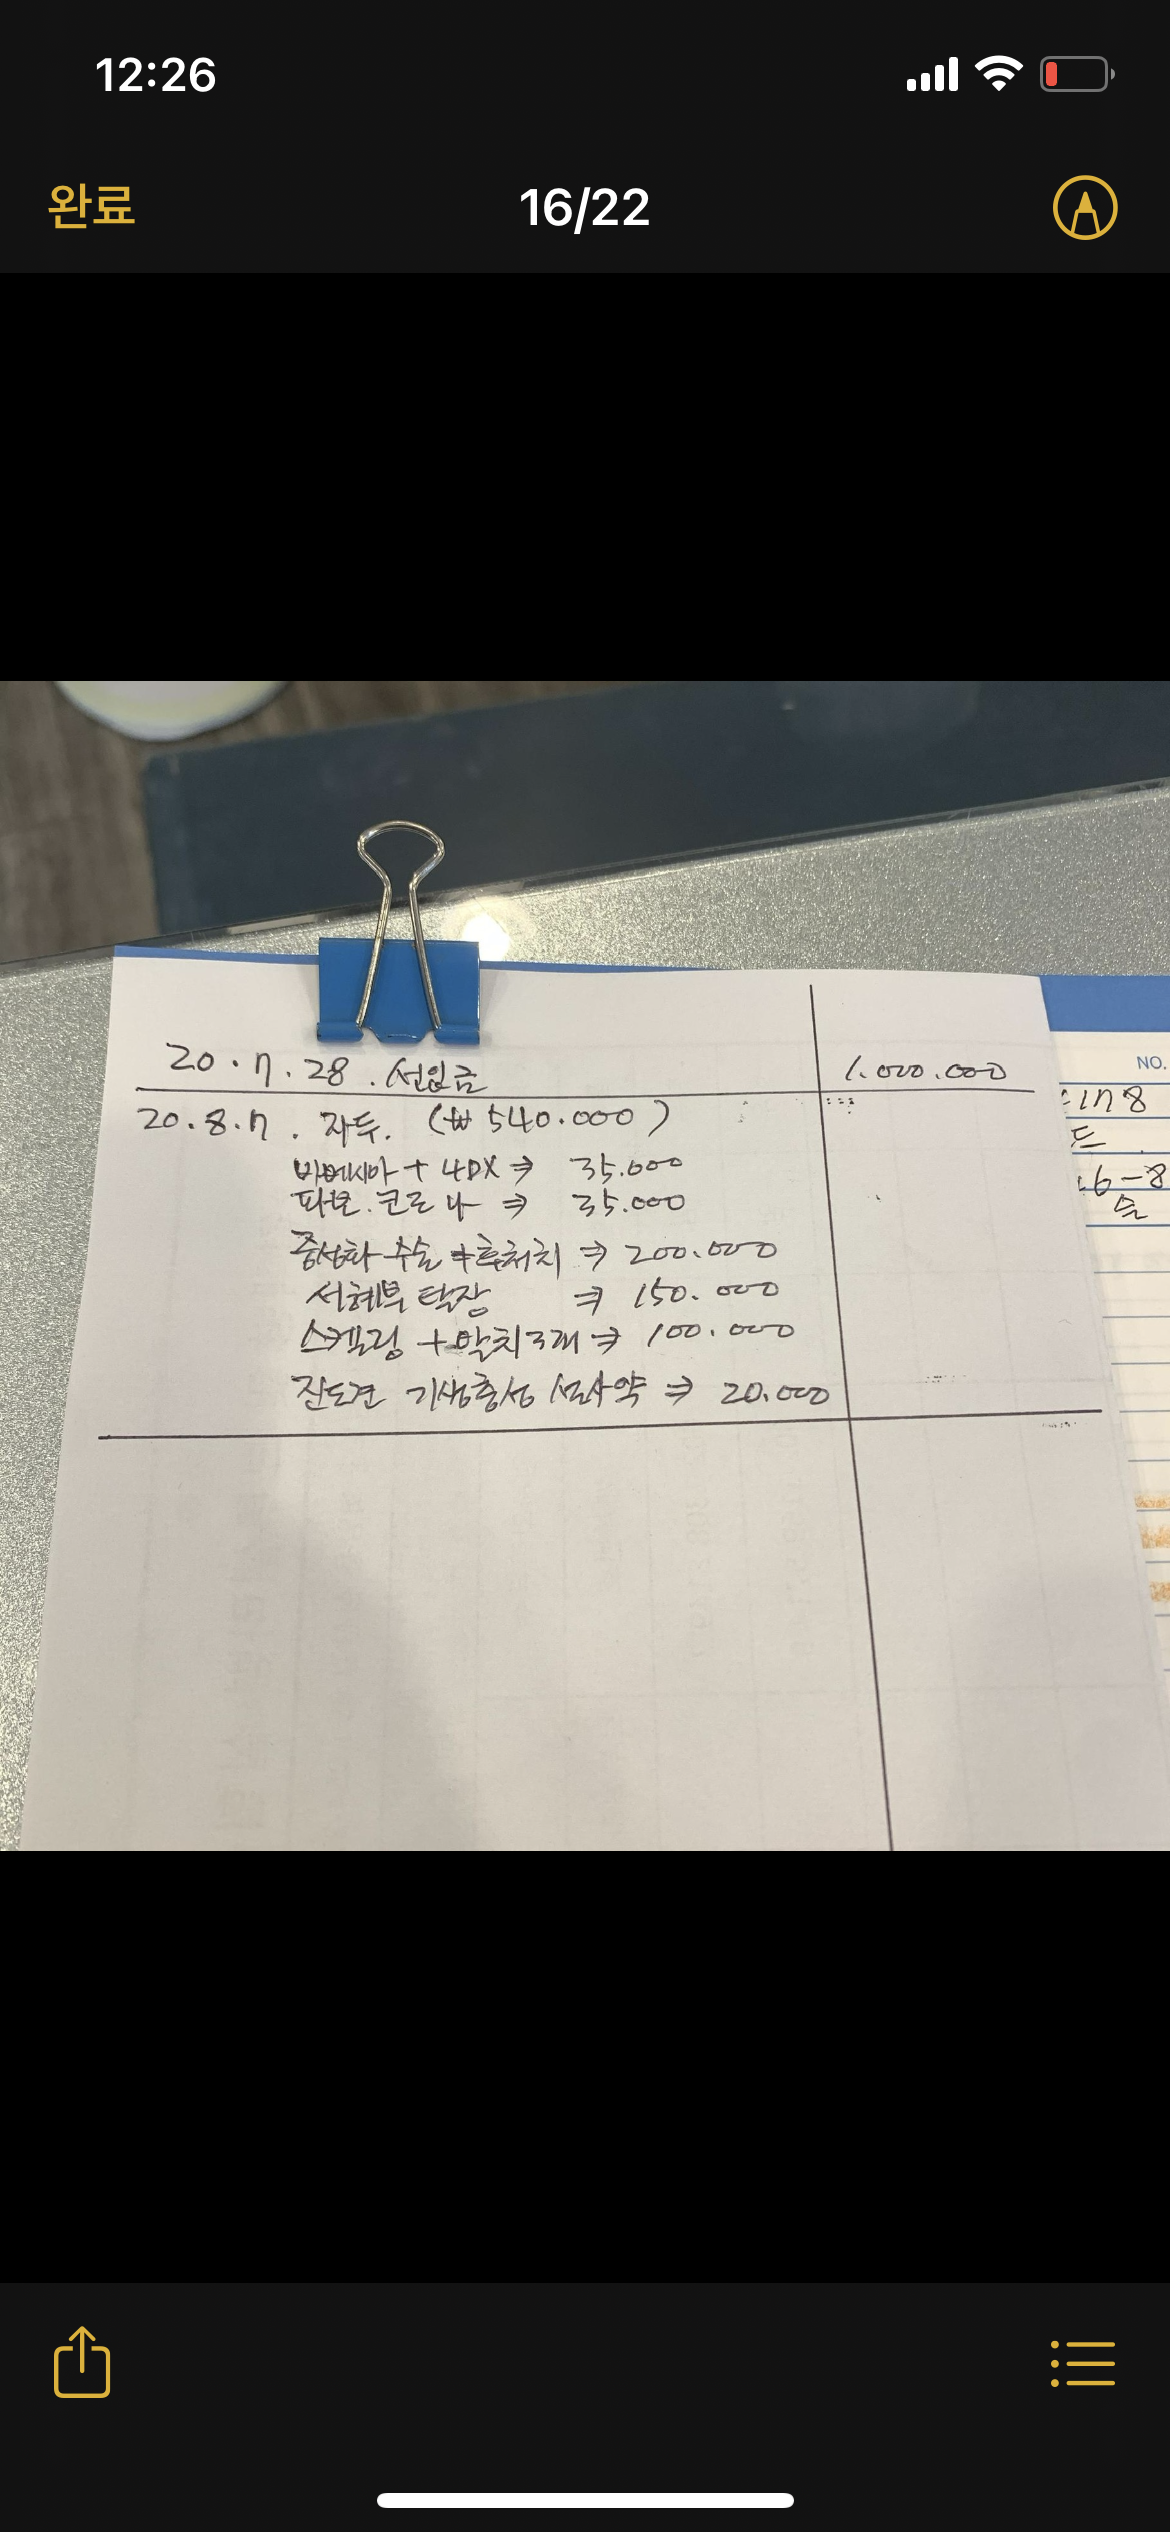 12:26
완료
16/22
20.7.28. 선입금
1.000.000
20.8.7. 자두. (₩540.000)
바베시아 + 4DX ⇒ 35.000
파보.코로나 ⇒ 35.000
중성화 수술 + 후처치 ⇒ 200.000
서혜부 탈장 ⇒ 150.000
스케일링 + 발치3개 ⇒ 100.000
진도견 기생충성 설사약 ⇒ 20.000
NO.
1178
드
.6-8
술